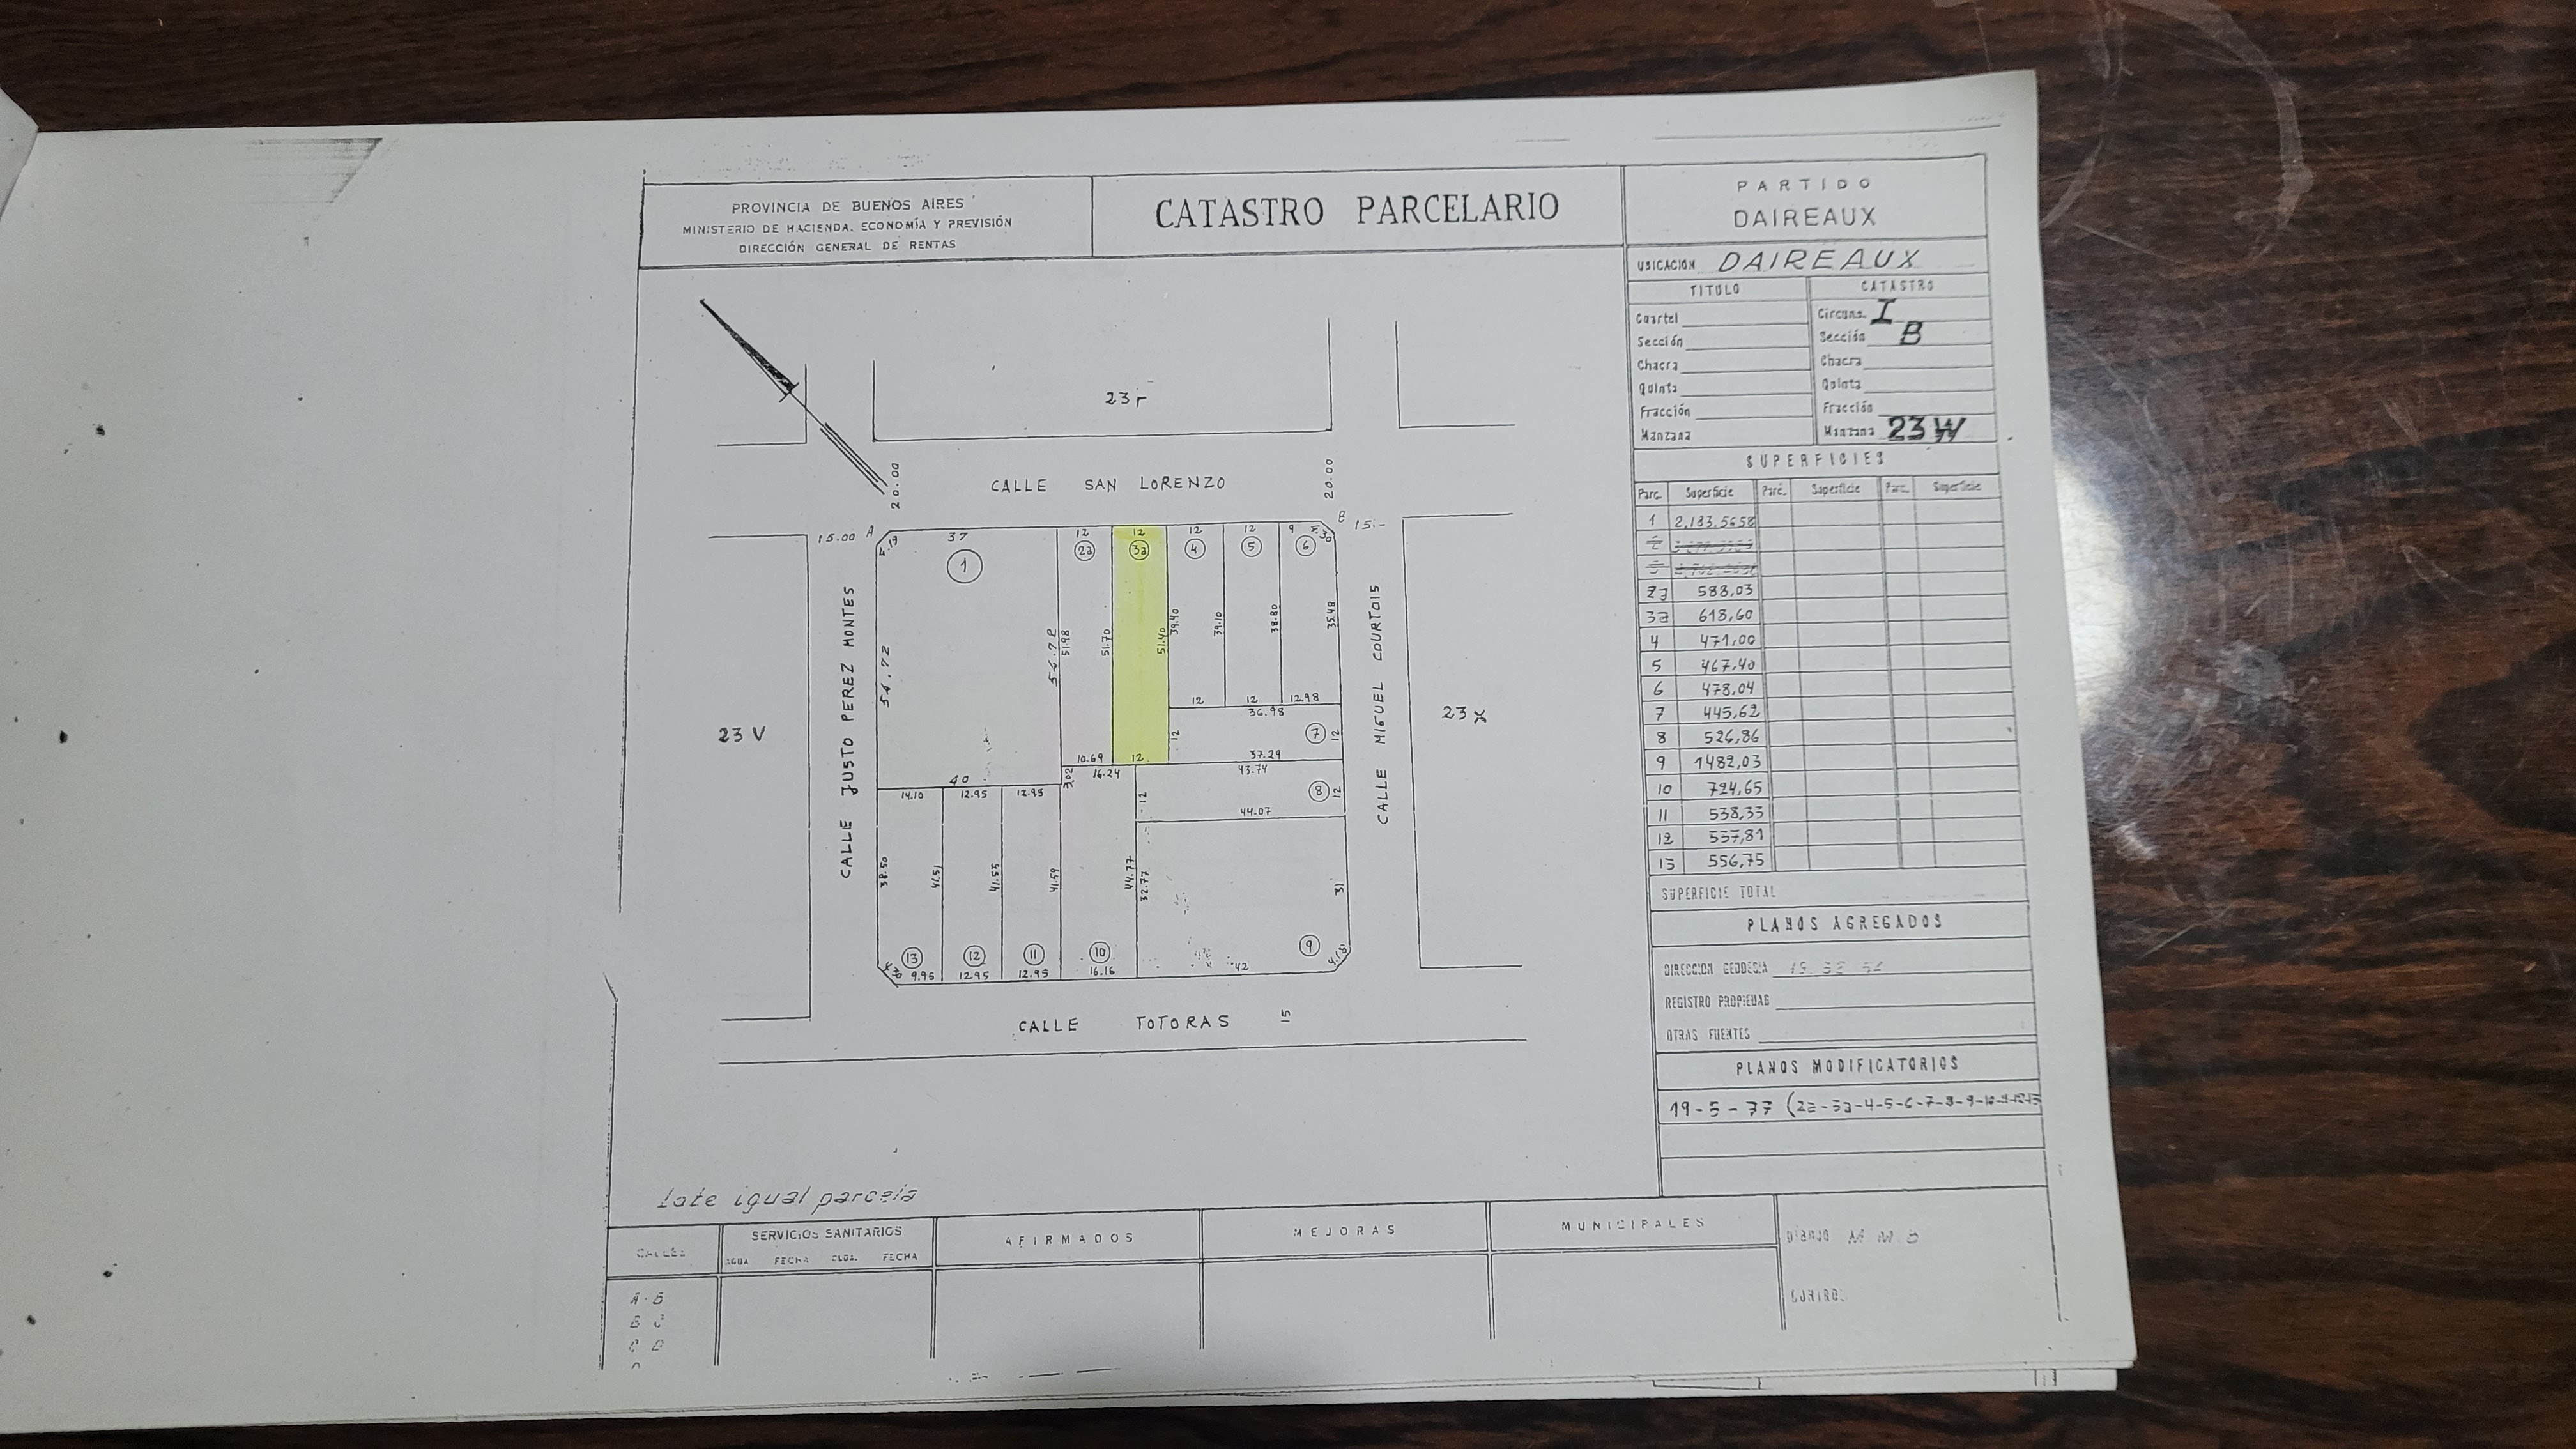 PROVINCIA DE BUENOS AIRES
MINISTERIO DE HACIENDA, ECONOMÍA Y PREVISIÓN
DIRECCIÓN GENERAL DE RENTAS
CATASTRO PARCELARIO
PARTIDO
DAIREAUX
UBICACION DAIREAUX
TITULO
CATASTRO
Cuartel
Circuns. I
Sección
Sección B
Chacra
Chacra
Quinta
Quinta
Fracción
Fracción
Manzana
Manzana 23 W
SUPERFICIES
Parc. Superficie Parc. Superficie Parc. Superficie
1 2,183.5658
2a 588,03
3a 618,60
4 471,00
5 467,40
6 478,04
7 445,62
8 526,86
9 1482,03
10 724,65
11 538,33
12 537,81
13 556,75
SUPERFICIE TOTAL
PLANOS AGREGADOS
DIRECCION GEODESIA
REGISTRO PROPIEDAD
OTRAS FUENTES
PLANOS MODIFICATORIOS
19-5-77 (2a-3a-4-5-6-7-8-9-10-11-12-13
23 r
20.00
CALLE SAN LORENZO
20.00
15.00 A
B 15.-
4.19
37
12
12
12
12
9
4.30
1
2a
3a
4
5
6
CALLE JUSTO PEREZ MONTES
54.72
54.72
51.98
51.70
51.40
39.40
39.10
38.80
35.48
CALLE MIGUEL COURTOIS
23 V
23 x
12
12
12.98
36.98
12
7
12
10.69
12
37.29
40
3,02
16.24
43.74
14.10
12.95
12.95
12
8
12
44.07
38.50
41.51
41.55
41.59
44.77
32.77
31
13
12
11
10
9
4.30
9.95
12.95
12.95
16.16
42
4.18
CALLE TOTORAS 15
Lote igual parcela
CALLES
SERVICIOS SANITARIOS
AGUA FECHA CLOA. FECHA
AFIRMADOS
MEJORAS
MUNICIPALES
DIBUJO
CONTROL
A-B
B C
C D